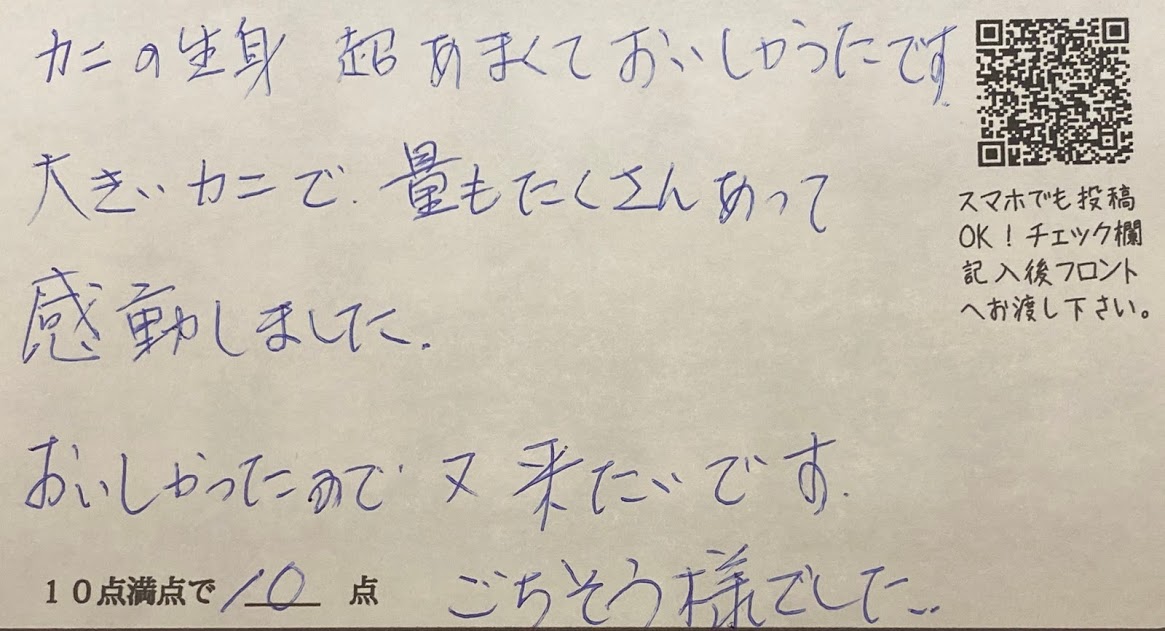 カニの生身 超あまくておいしかったです
大きいカニで.量もたくさんあって
感動しました.
おいしかったので又来たいです.
10点満点で 10 点 ごちそう様でした..
スマホでも投稿
OK!チェック欄
記入後フロント
へお渡し下さい。